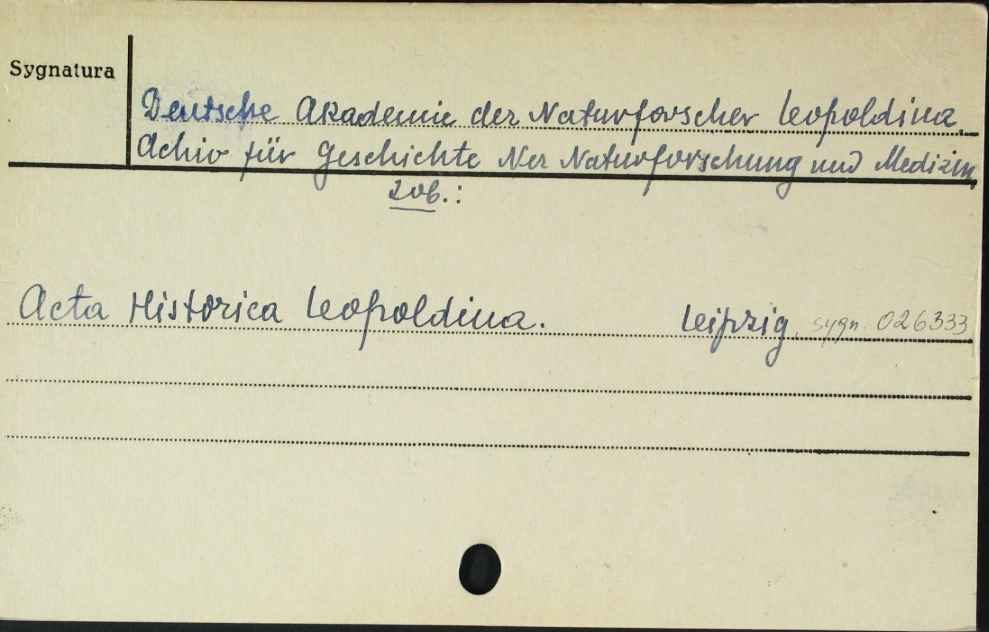 Sygnatura
Deutsche Akademie der Naturforscher Leopoldina.
Achiv für Geschichte der Naturforschung und Medizin,
zob.:
Acta Historica Leopoldina. Leipzig, sygn. 026333